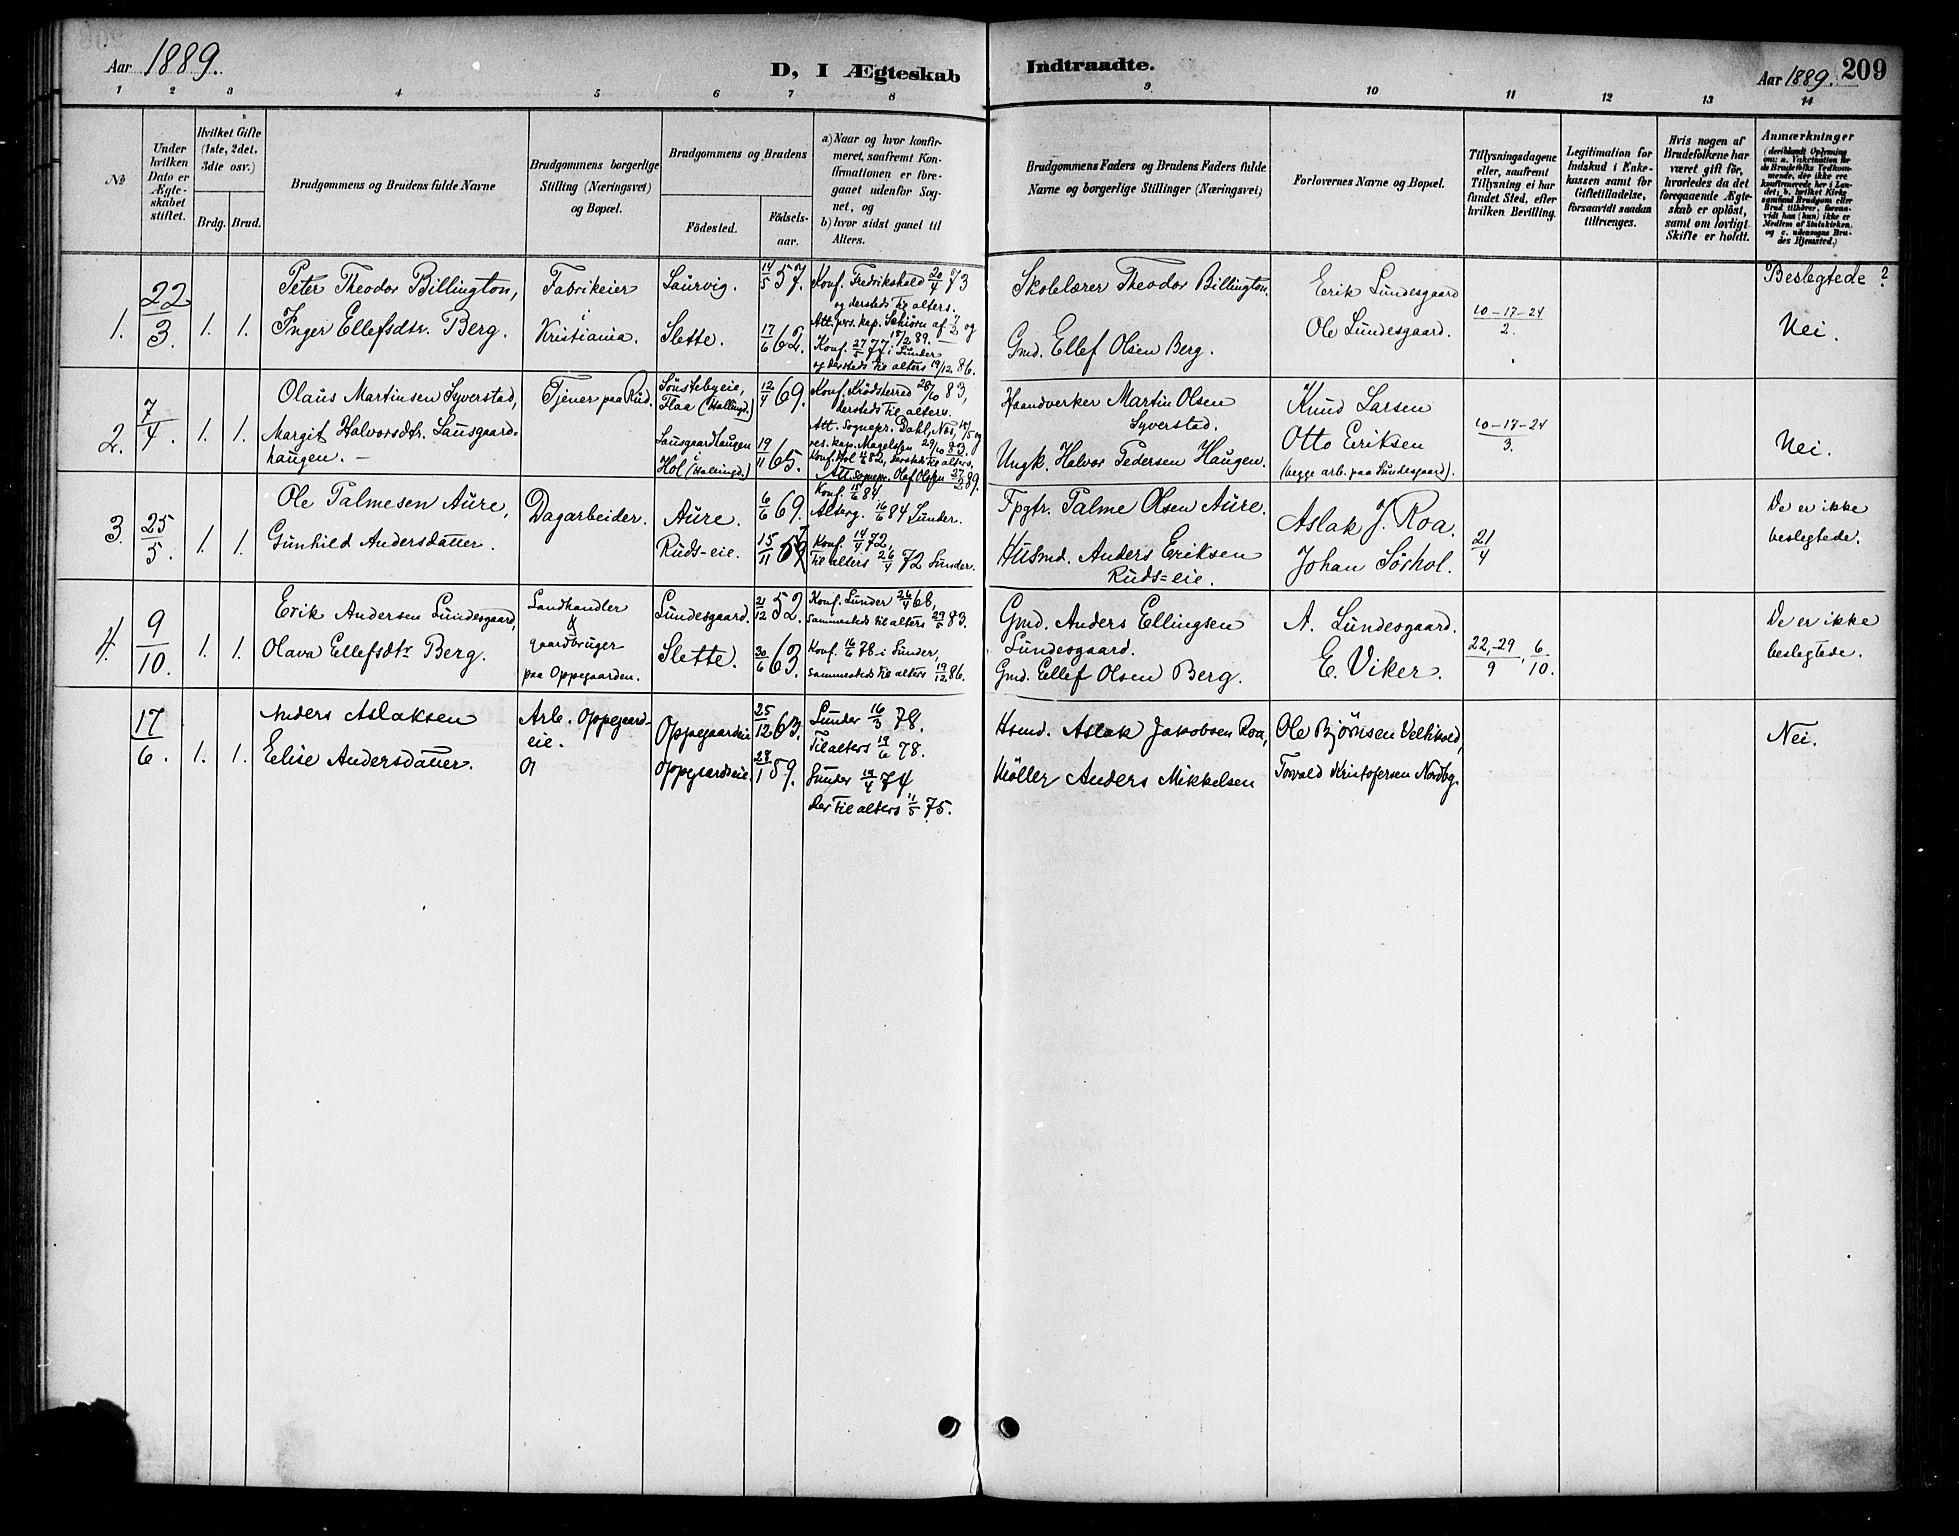 Aar 1889.
D, I Ægteskab
Indtraadte.
Aar 1889. 209
1 2 3 4 5 6 7 8 9 10 11 12 13 14
No
Under hvilken Dato er Ægteskabet stiftet.
Hvilket Gifte (1ste, 2det, 3die osv.)
Brdg. Brud.
Brudgommens og Brudens fulde Navne
Brudgommens borgerlige Stilling (Næringsvei) og Bopæl.
Brudgommens og Brudens
Födested.
Födselsaar.
a) Naar og hvor konfirmeret, saafremt Konfirmationen er foregaaet udenfor Sognet, og
b) hvor sidst gaaet til Alters.
Brudgommens Faders og Brudens Faders fulde Navne og borgerlige Stillinger (Næringsvei)
Forlovernes Navne og Bopæl.
Tillysningsdagene eller, saafremt Tillysning ei har fundet Sted, efter hvilken Bevilling.
Legitimation for Indskud i Enkekassen samt for Giftetilladelse, forsaavidt saadan tiltrænges.
Hvis nogen af Brudefolkene har været gift för, hvorledes da det foregaaende Ægteskab er oplöst, samt om lovligt Skifte er holdt.
Anmærkninger
(deriblandt Oplysning om: a. Vakcination for de Brudefolks Vedkommende, der ikke ere konfirmerede her i Landet; b. hvilket Kirkesamfund Brudgom eller Brud tilhörer, forsaavidt han (hun) ikke er Medlem af Statskirken, og c. udensogns Brudes Hjemsted.)
1. 22/3. 1. 1.
Peter Theodor Billington,
Inger Ellefsdtr. Berg.
Fabrikeier
Kristiania.
Laurvig. 14/5 57.
Slette. 17/6 62.
Konf. Fredrikshald 20/4 73
og dersteds til alters.
Att. prs. kap. Schiørn af 7/2 og
18/2 89.
Konf. 27/5 77 i Lunder
og dersteds til alters 19/12 86.
Skolelærer Theodor Billington.
Gmd. Ellef Olsen Berg.
Erik Lundesgaard
Ole Lundesgaard.
10-17-24/2.
Beslegtede?
Nei.
2. 7/4. 1. 1.
Olaus Martinsen Syverstad,
Margit Halvorsdtr. Lausgaard-
haugen. -
Tjener paa Rud.
Soustebyeie,
Flaa (Hallingd.) 12/4 69.
Lausgaardhaugen
i
Hol (Hallingd.) 19/11 65.
Konf. Krødsherred 28/10 83,
dersteds til alters.
Att. Sognepr. Dahl, Nes, 14/5 og
res. kap. Magelssen 29/10 83.
Konf. Hol 11/6 82, dersteds til alters.
Att. Sognepr. Olaf Olafsen 27/2 89.
Haandverker Martin Olsen
Syverstad.
Ungk. Halvor Pedersen Haugen.
Knud Larsen
Otto Eriksen
(begge arb. paa Lundesgaard).
10-17-24/3
Nei.
3. 25/5. 1. 1.
Ole Palmesen Aure,
Gunhild Andersdatter.
Dagarbeider.
Aure. 6/6 69.
Ruds-eie. 15/11 57
Konf. 15/6 84.
Alterg. 16/6 84 Lunder.
Konf. 14/4 72,
til alters 26/4 72 Lunder.
Fpgtr. Palme Olsen Aure.
Husmd. Anders Eriksen
Ruds=eie.
Aslak J. Roa.
Johan Sørhol.
21/4
De er ikke
beslegtede.
4. 9/10. 1. 1.
Erik Andersen Lundesgaard,
Olava Ellefsdtr Berg.
Landhandler
&
gaardbruger
paa Oppegaarden.
Lundesgaard. 21/12 52.
Slette. 30/6 63.
Konf. Lunder 26/4 68,
sammesteds til alters 29/5 83.
Konf. 16/6 78 i Lunder,
sammesteds til alters 19/12 86.
Gmd. Anders Ellingsen
Lundesgaard.
Gmd. Ellef Olsen Berg.
A. Lundesgaard.
E. Viker.
22,-29/9, 6/10.
De er ikke
beslegtede.
17/6. 1. 1.
Anders Aslaksen
Elise Andersdatter.
Arb. Oppegaard-
eie.
Oppegaardseie 25/12 63.
Oppegaardseie. 28/1 59.
Lunder 16/3 78.
Til alters 19/6 78.
Lunder 19/4 74
der til alters 11/5 75.
Hsmd. Aslak Jakobsen Roa,
Møller Anders Mikkelsen
Ole Bjørnsen Veltikold,
Torvald Kristofersen Nordby.
Nei.